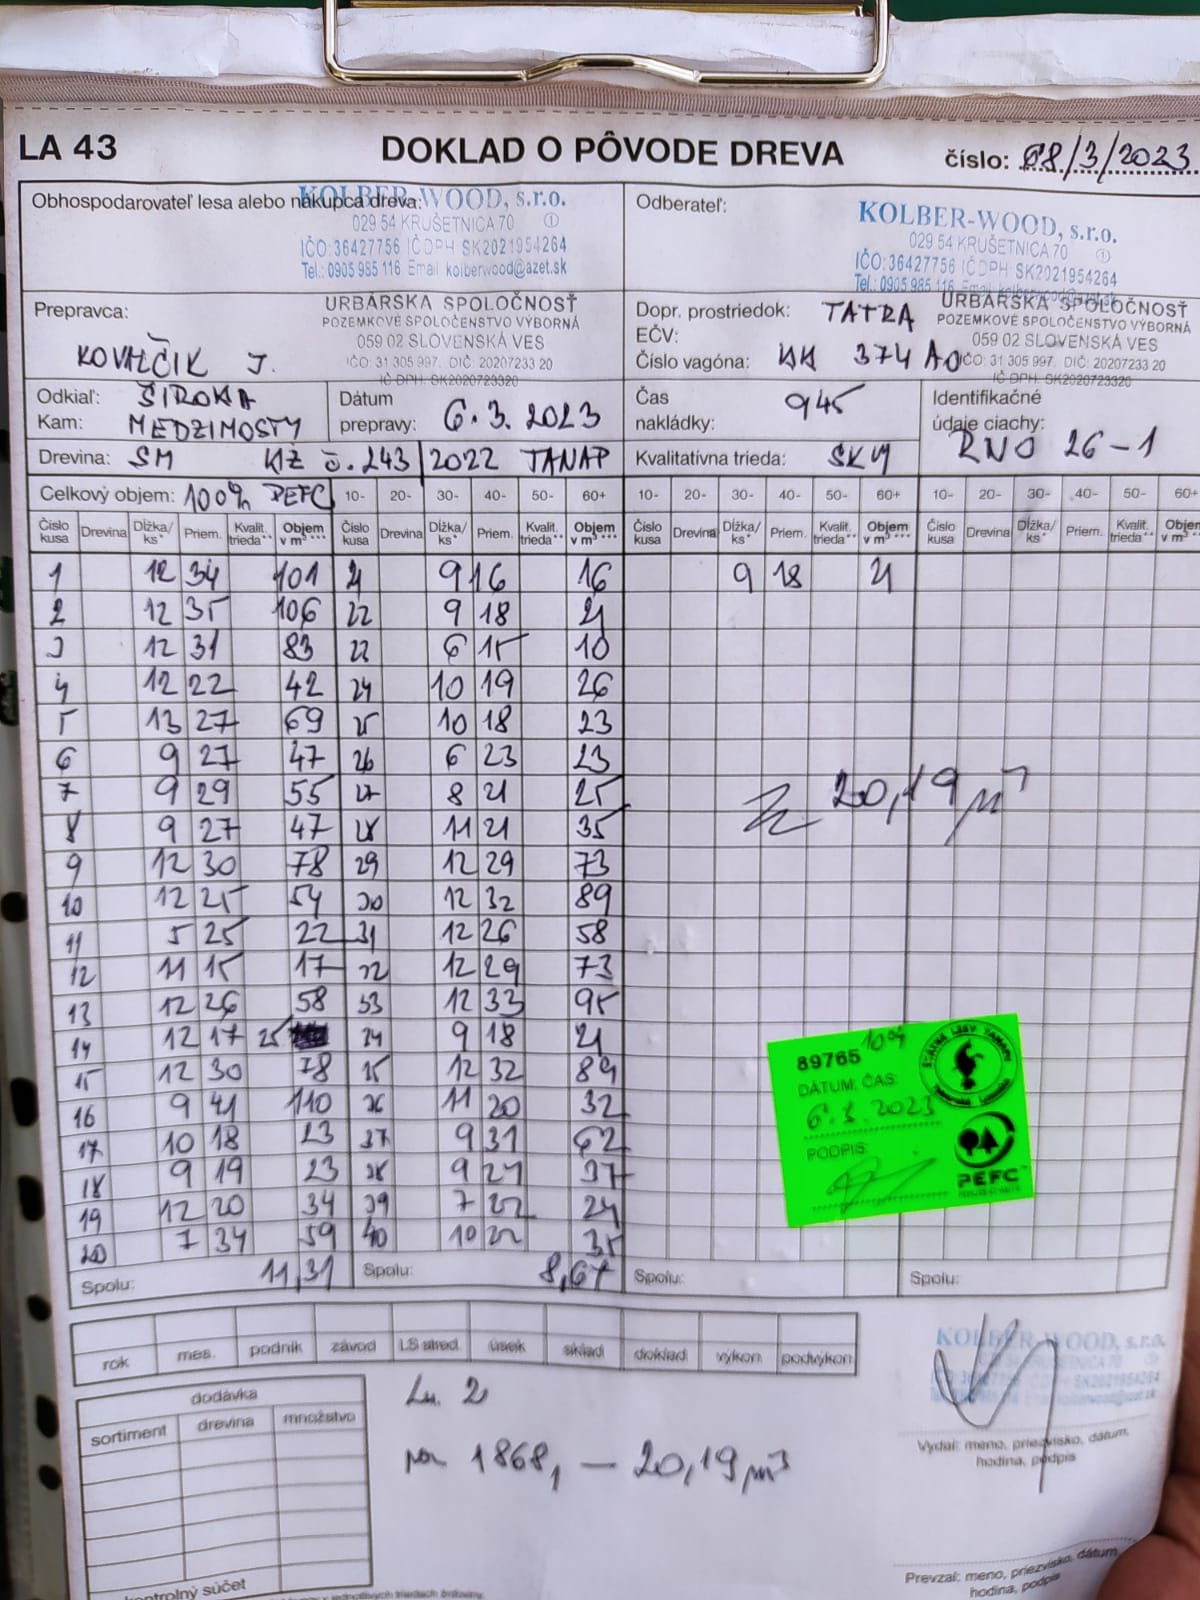 LA 43 DOKLAD O PÔVODE DREVA číslo: 08/3/2023
Obhospodarovateľ lesa alebo nákupca dreva:
KOLBER-WOOD, s.r.o.
029 54 KRUŠETNICA 70 ①
IČO:36427756 IČ DPH: SK2021954264
Tel.: 0905 985 116 Email: kolberwood@azet.sk
Odberateľ:
KOLBER-WOOD, s.r.o.
029 54 KRUŠETNICA 70 ①
IČO:36427756 IČ DPH: SK2021954264
Tel.: 0905 985 116
Prepravca:
KOVALČIK J.
URBÁRSKA SPOLOČNOSŤ
POZEMKOVÉ SPOLOČENSTVO VÝBORNÁ
059 02 SLOVENSKÁ VES
IČO: 31 305 997, DIČ: 20207233 20
IČ DPH: SK2020723320
Dopr. prostriedok: TATRA
EČV:
Číslo vagóna: KK 374 AO
URBÁRSKA SPOLOČNOSŤ
POZEMKOVÉ SPOLOČENSTVO VÝBORNÁ
059 02 SLOVENSKÁ VES
IČO: 31 305 997, DIČ: 20207233 20
IČ DPH: SK2020723320
Odkiaľ: ŠIROKA
Kam: MEDZIMOSTY
Dátum
prepravy: 6.3.2023
Čas
nakládky: 945
Identifikačné
údaje ciachy:
RNO 26-1
Drevina: SM KŽ č. 243/2022 TANAP Kvalitatívna trieda:
Celkový objem: 100% PEFC 10- 20- 30- 40- 50- 60+ 10- 20- 30- 40- 50- 60+ 10- 20- 30- 40- 50- 60+
Číslo kusa Drevina Dĺžka/ ks* Priem. Kvalit. trieda** Objem v m³*** Číslo kusa Drevina Dĺžka/ ks* Priem. Kvalit. trieda** Objem v m³*** Číslo kusa Drevina Dĺžka/ ks* Priem. Kvalit. trieda** Objem v m³*** Číslo kusa Drevina Dĺžka/ ks* Priem. Kvalit. trieda** Objem v m³***
1 12 34 101 21 9 16 16 9 18 21
2 12 35 106 22 9 18 21
3 12 31 83 6 15 10
4 12 22 42 24 10 19 26
5 13 27 69 25 10 18 23
6 9 27 47 26 6 23 23
7 9 29 55 27 8 21 25
8 9 27 47 28 11 21 35
9 12 30 78 29 12 29 73
10 12 25 54 30 12 32 89
11 5 25 22 31 12 26 58
12 11 15 17 32 12 29 73
13 12 26 58 33 12 33 95
14 12 17 25 34 9 18 21
15 12 30 78 35 12 32 89
16 9 41 110 36 11 20 32
17 10 18 23 37 9 31 62
18 9 19 23 38 9 27 37
19 12 20 34 39 7 22 24
20 7 34 59 40 10 22 35
20,19 m³
Spolu: 11,31 Spolu: 8,67 Spolu: Spolu:
89765
DÁTUM, ČAS:
6.3.2023
PODPIS:
ŠTÁTNE LESY TANAPU
PEFC
rok mes. podnik závod LS stred. úsek sklad doklad výkon podvýkon
dodávka
sortiment drevina množstvo
1868, — 20,19 m³
KOLBER-WOOD, s.r.o.
Vydal: meno, priezvisko, dátum,
hodina, podpis
Prevzal: meno, priezvisko, dátum,
hodina, podpis
kontrolný súčet